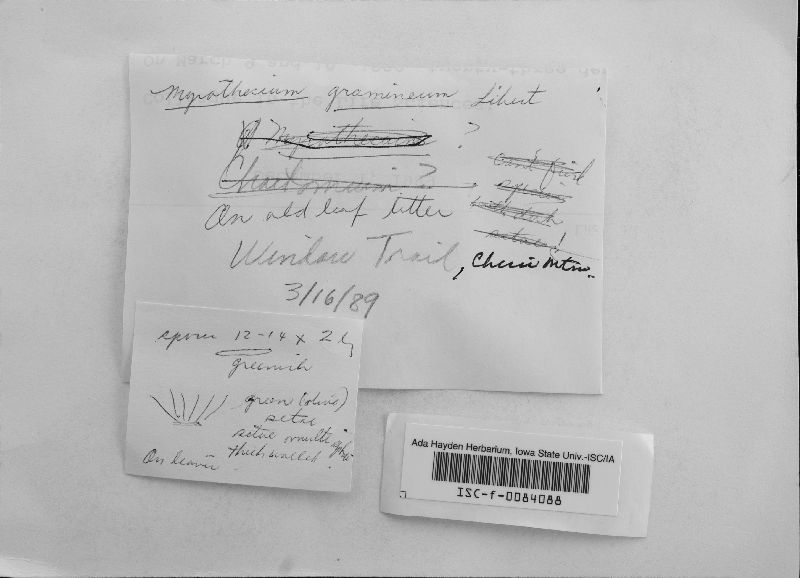 Myrothecium gramineum Libert
Myrothecium ?
Chaetomium ?
can't find
species
with dark
setae!
On old leaf litter
Window Trail, Chisos Mtns.
3/16/89
spores 12-14 x 2
greenish
green (olive)
setae
setae multi
thick walled
On leaves
Ada Hayden Herbarium, Iowa State Univ.-ISC/IA
ISC-f-0084088